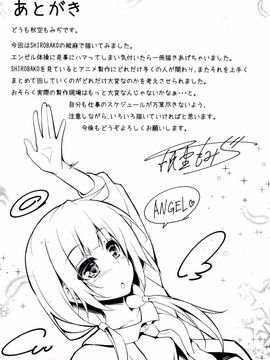 あとがき
どうも秋空もみぢです。
今回はSHIROBAKOの絵麻で描いてみました。
エンゼル体操に見事にハマってしまい気付いたら一冊描きあげちゃいました。
SHIROBAKOを見ているとアニメ製作にどれだけ多くの人が関わり、またそれを上手く
まとめて回していくのがどれだけ大変なのかを考えさせられました。
おそらく実際の製作現場はもっと大変なんじゃないかなぁ…と。
自分も仕事のスケジュールが万策尽きないよう、
注意しながら、いろいろ描いていければと思います。
今後もどうぞよろしくお願いします。
ANGEL